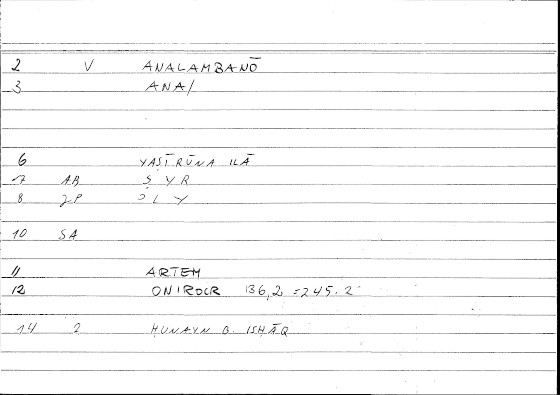 2 V ANALAMBANŌ
3 ANA/
6 YAṢĪRŪNA ILĀ
7 AB Ṣ Y R
8 JP
10 SA
11 ARTEM
12 ONIROCR 136,2 = 245.2
14 2 ḤUNAYN B. ISḤĀQ